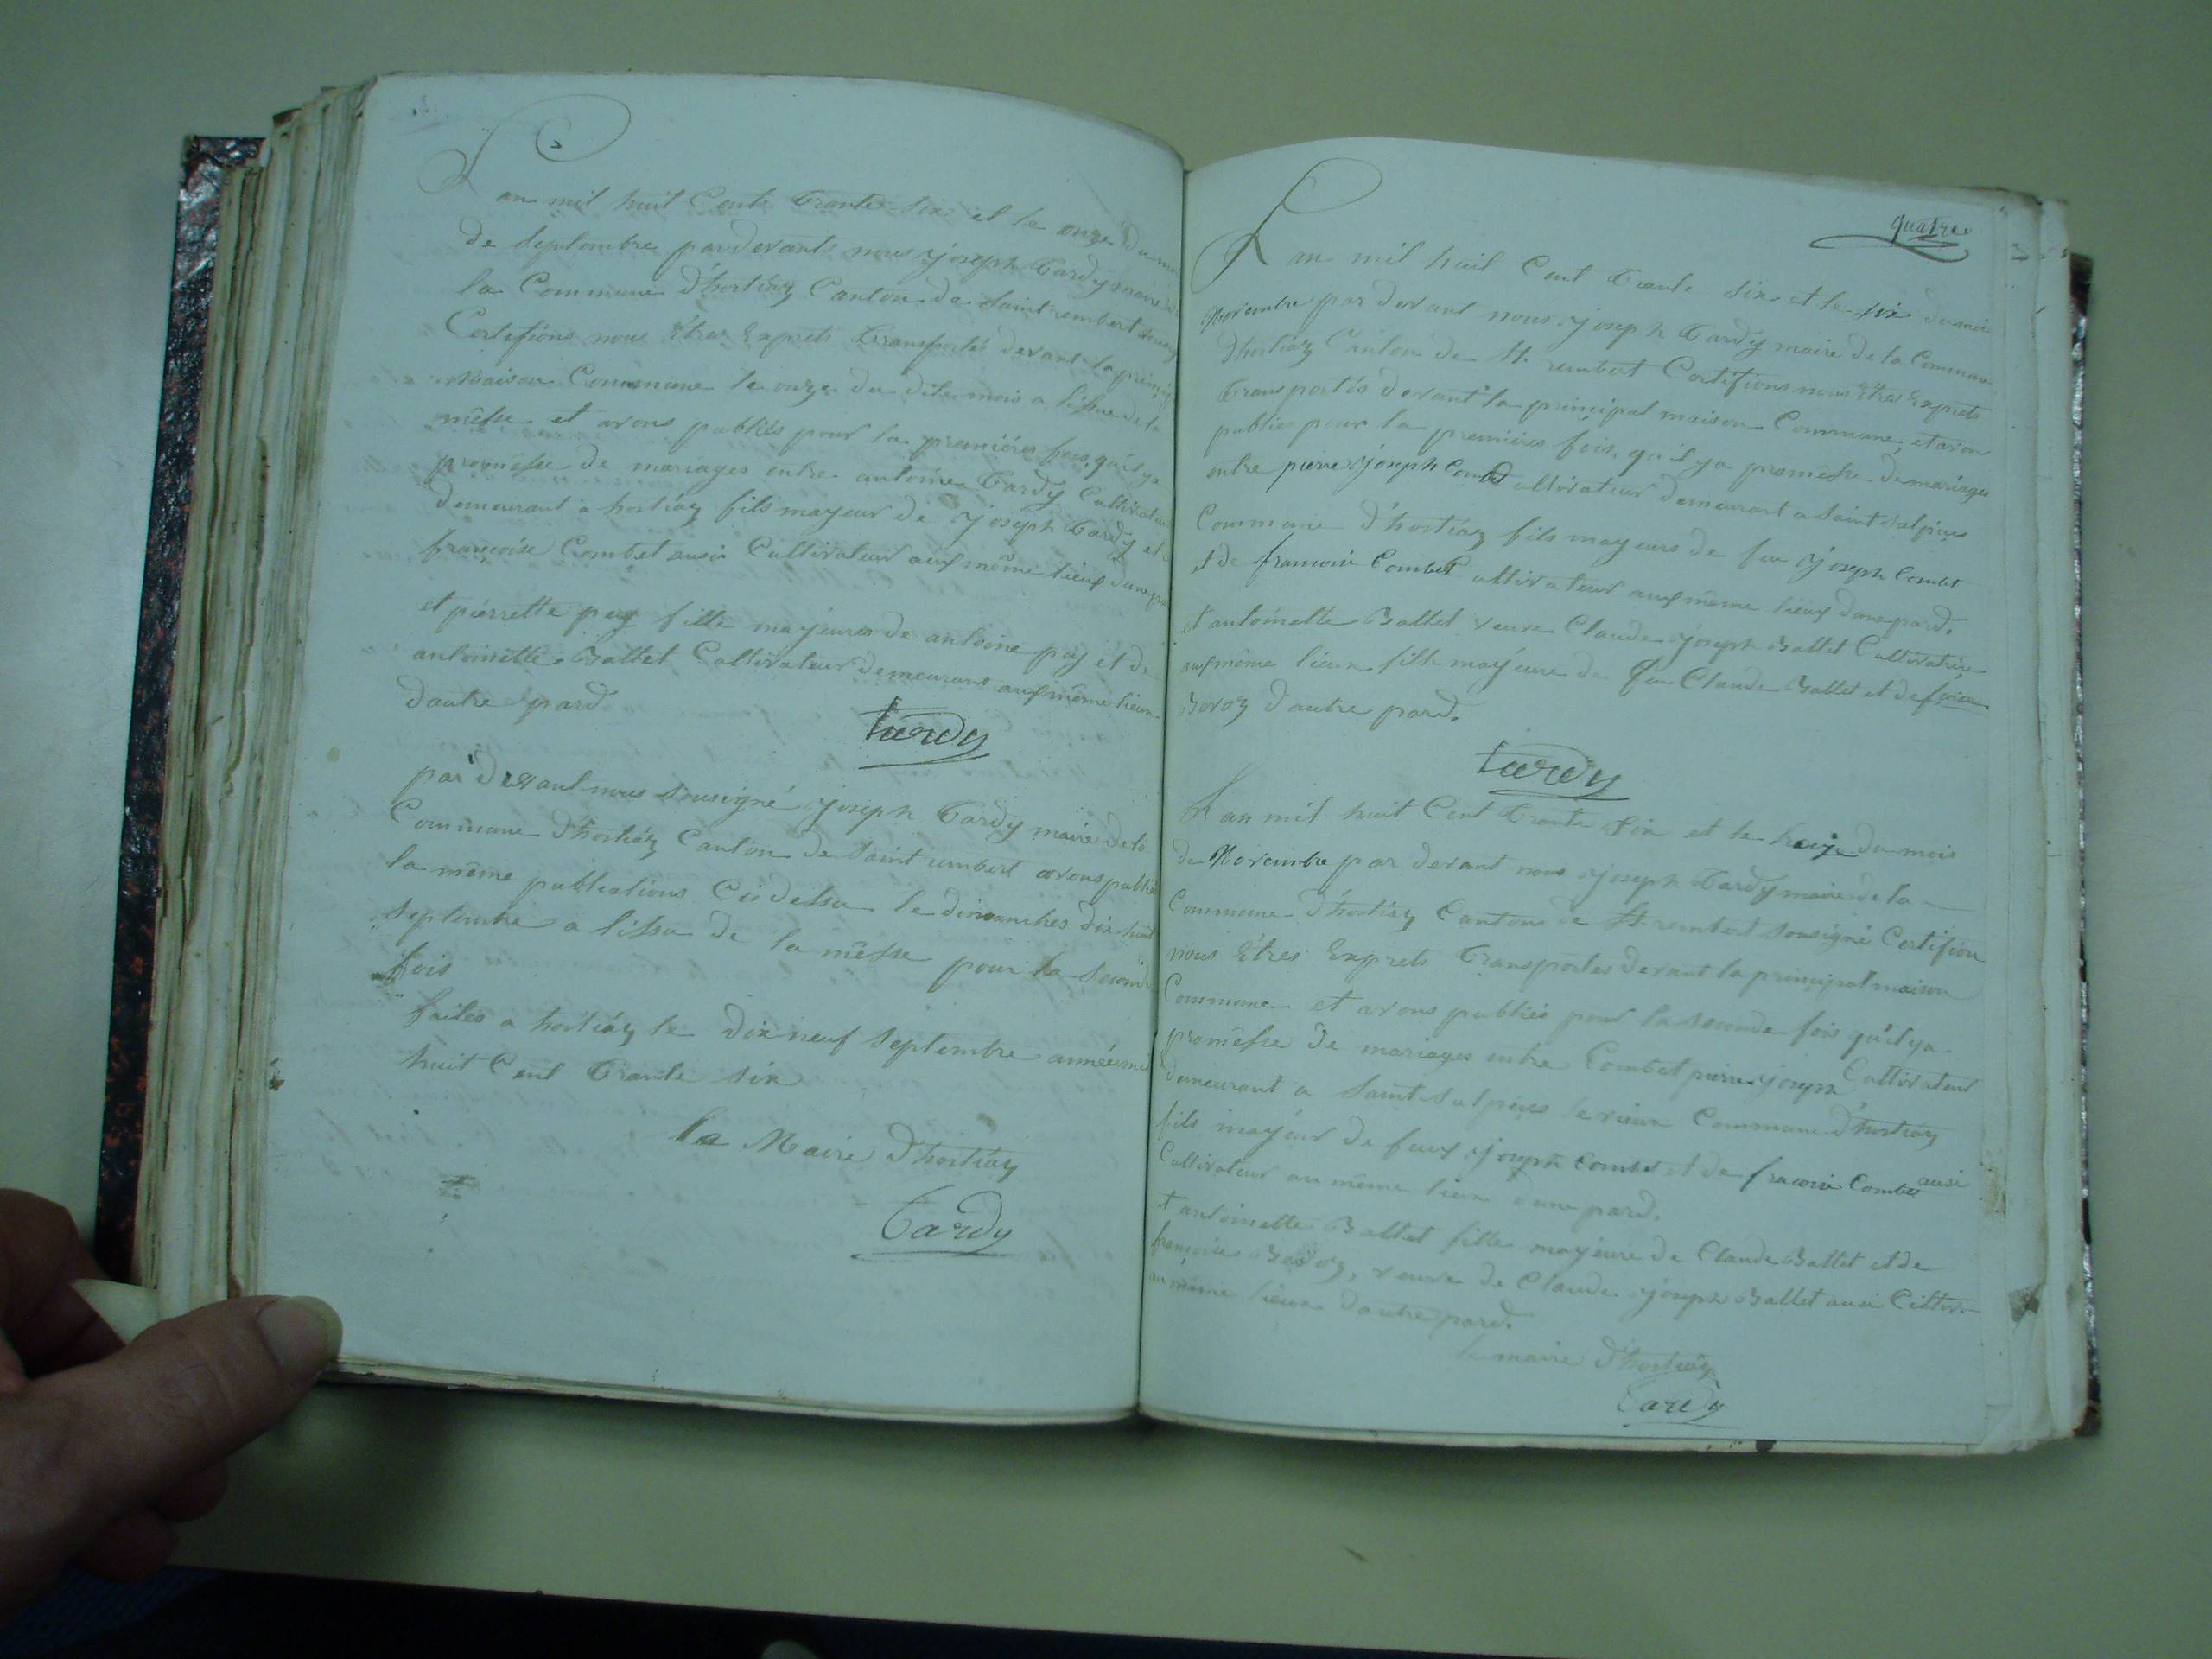 L'an mil huit Cents trante-six et le onze du moi
de Septembre pardevants nous joseph Tardy maire de
la Commune d'hortiaz Canton de Saint rembert
Certifions nous Etres Exprets transportés devant la prinçipal
Maison Commune le onze du dite mois a lissue de la
mêsse et avons publiés pour la premières fois, qu'il ya
promêsse de mariages entre antoine Tardy Cultivateur
demeurant a hortiaz fils mayeur de joseph Tardy et
françoise Combet ausi Cultivateur aux même lieux dune par
et pierrette pey fille mayeures de antoine pey et de
antoinette Ballet Cultivateur demeurant aux même lieux
dautre pard
tardy
par devant nous sousigné joseph Tardy maire de la
Commune d'hortiaz Canton de Saint rembert avons publié
la même publications Cidessu le dimanches dix huit
Septembre a lissu de la mêsse pour la Seconde
fois
faites a hortiaz le dix neuf Septembre année mil
huit Cent trante six
Le Maire d'hortiaz
Tardy
quatre
L'an mil huit Cent trante six et le six du moi
Novembre par devant nous joseph Tardy maire de la Commune
d'hortiaz Canton de St. rembert Certifions nous Etres Exprets
transportés devant la principal maison Commune, et avon
publies pour la premières fois, qu'il ya promêsse de mariages
entre pierre joseph Combet Cultivateur demeurant a Saint Sulpices
Commune d'hortiaz fils mayeurs de feu joseph Combet
et de francoise Combet Cultivateur aux même lieux dune pard.
et antoinette Ballet veuve Claude joseph Ballet Cultivatrice
aux même lieux fille mayeure de feu Claude Ballet et de fçoise
Bovoz d'autre pard.
tardy
L'an mil huit Cent trante six et le treize du mois
de Novembre par devant nous joseph Tardy maire de la
Commune d'hortiaz Cantons de St rembert sousigné Certifion
nous Etres Exprets transportes devant la prinçipal maison
Commune et avons publiés pour la seconde fois qu'il ya
promêsse de mariages entre Combet pierre joseph Cultivateur
demeurant a Saint-Sulpices le vieux Commune d'hortiaz
fils mayeur de feux joseph Combet et de fracoise Combet ausi
Cultivateur au même lieux dune pard.
et antoinette Ballet fille mayeure de Claude Ballet et de
françoise Bovoz, veuve de Claude joseph Ballet ausi Cultiv.
au même lieux dautre pard.
le maire d'hortiaz
Tardy